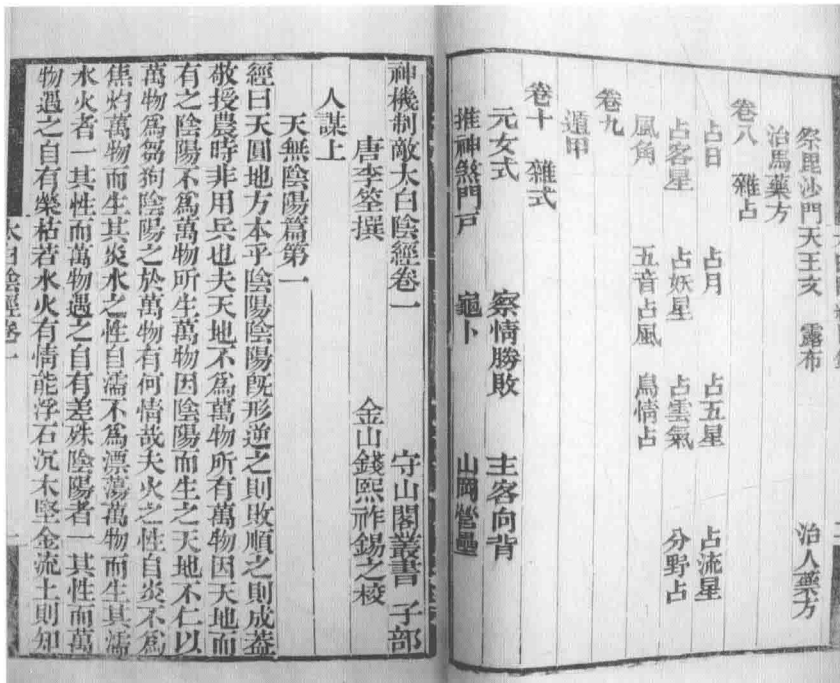 祭毘沙門天王文 露布 治人藥方
治馬藥方
卷八 雜占
占日 占月 占五星 占流星
占客星 占妖星 占雲氣 分野占
風角 五音占風 鳥情占
卷九
遁甲
卷十 雜式
元女式 察情勝敗 主客向背
推神煞門戶 龜卜 山岡營壘
神機制敵太白陰經卷一 守山閣叢書 子部
唐李筌撰 金山錢熙祚錫之校
人謀上
天無陰陽篇第一
經曰天圓地方本乎陰陽陰陽旣形逆之則敗順之則成蓋
敬授農時非用兵也夫天地不爲萬物所有萬物因天地而
有之陰陽不爲萬物所生萬物因陰陽而生之天地不仁以
萬物爲芻狗陰陽之於萬物有何情哉夫火之性自炎不爲
焦灼萬物而生其炎水之性自濡不爲漂蕩萬物而生其濡
水火者一其性而萬物遇之自有差殊陰陽者一其性而萬
物遇之自有榮枯若水火有情能浮石沉木堅金流土則知
太白陰經卷一